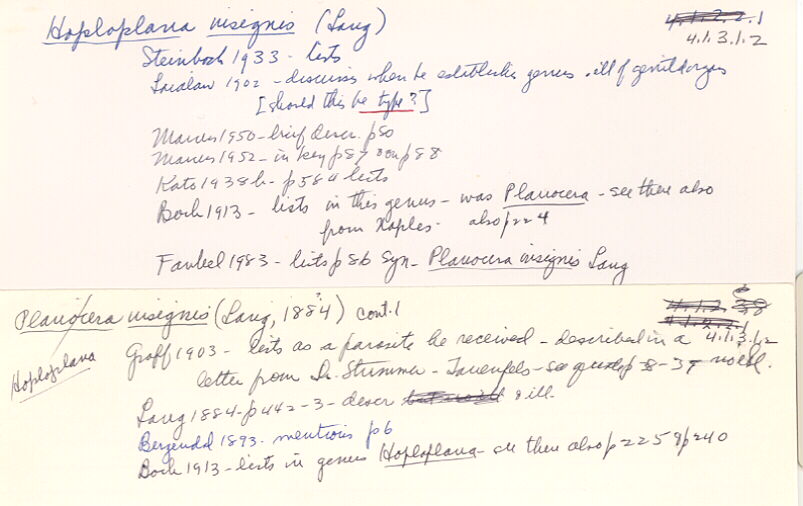 Hoploplana insignis (Lang)
4.1.2.2.1
4.1.3.1.2
Steinboch 1933 - lists
Laidlaw 1902 - discusses when he establishes genus - ill of genital organs
[should this be type?]
Marcus 1950 - brief descr. p 80
Marcus 1952 - in key p 87 on p 88
Kato 1938b - p 584 lists
Bock 1913 - lists in this genus - was Planocera - see there also
from Naples - also p 224
Faubel 1983 - lists p 86 Syn - Planocera insignis Lang
Planocera insignis (Lang, 1884) cont.1
4.1.3.1.2
Hoploplana
Graff 1903 - lists as a parasite he received - described in a
letter from Dr. Stummer - Traunfels - see p 38-39
Lang 1884 - p 442-3 - descr & ill.
Bergendal 1893 - mentions p 6
Bock 1913 - lists in genus Hoploplana - see there also p 225 & p 240